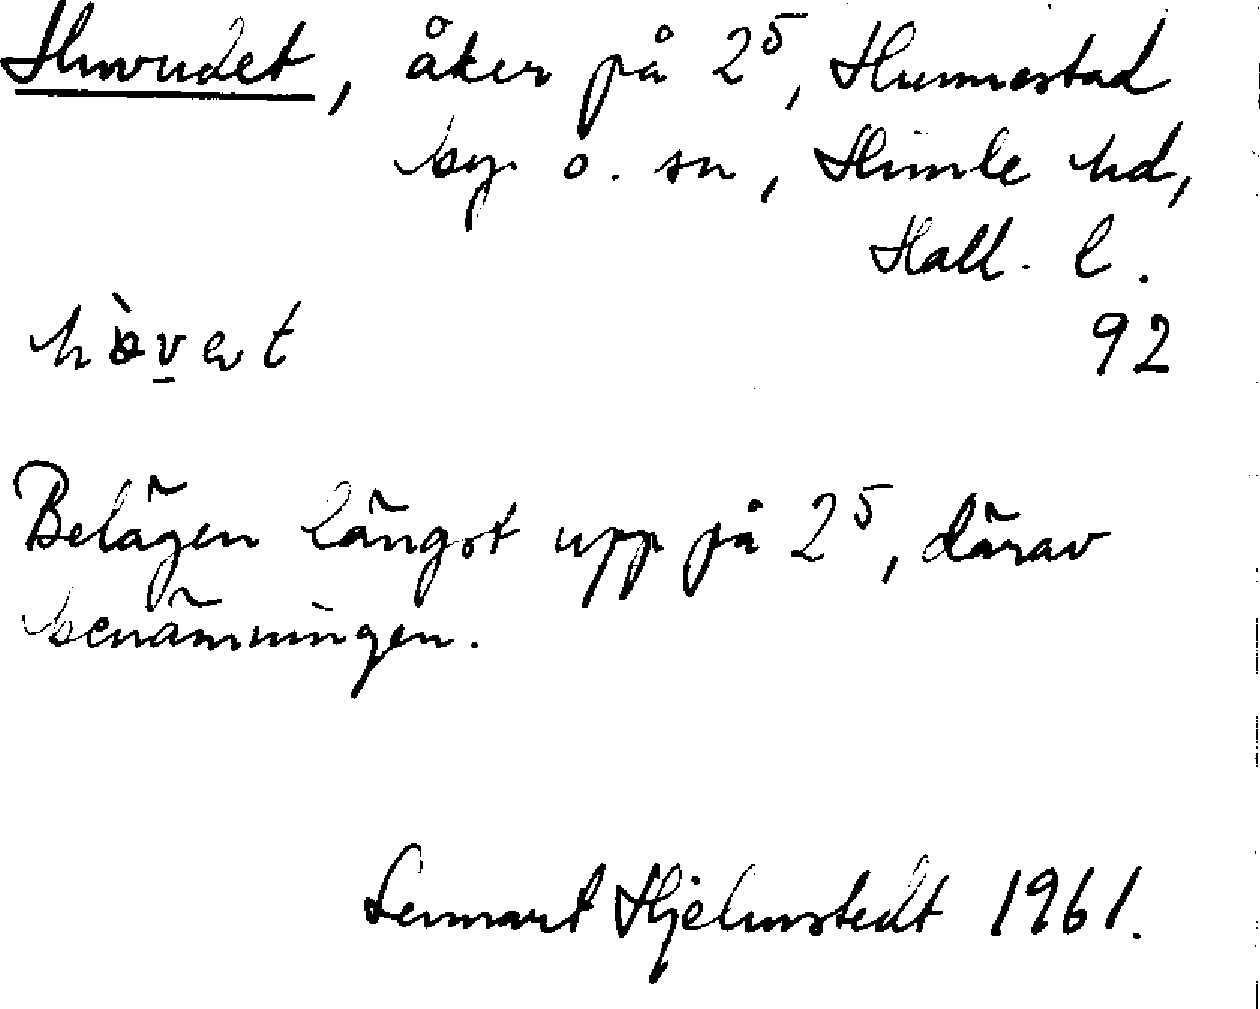 Huvudet, åker på 2⁵, Hunnestad
by o. sn, Himle hd,
Hall. l.
92
Belägen längst upp på 2⁵, därav
benämningen.
Lennart Hjelmstedt 1961.